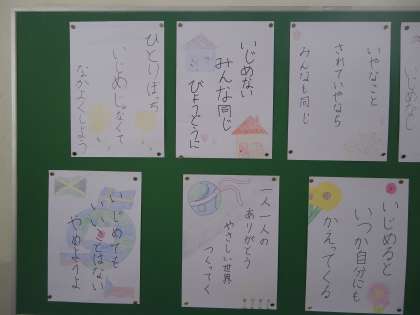 ひとりぼっち
いじめしなくて
なかよくしよう
いじめない
みんな同じ
びょうどうに
いやなこと
されていやなら
みんなも同じ
いじめない
いじめても
いいことはない
やめようよ
一人一人の
ありがとう
やさしい世界
つくってく
いじめると
いつか自分にも
かえってくる